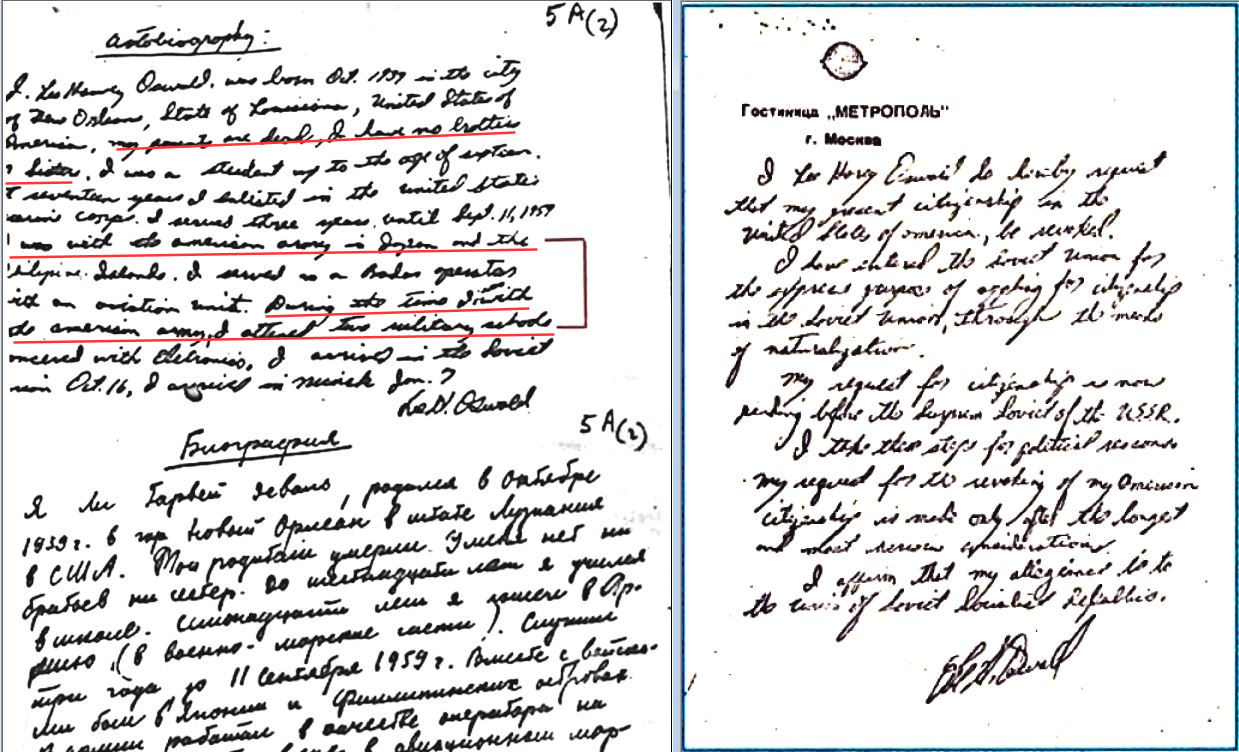 5A(2)
Autobiography:
I. Lee Harvey Oswald. was born Oct. 1939 in the city
of New Orleans, State of Louisiana, United States of
America, my parents are dead, I have no brothers
Sisters. I was a student up to the age of sixteen.
seventeen years I enlisted in the united States
corps. I served three years. until Sept. 11, 1959
was with the american army in Japan and the
Islands. I served as a Radar operator
ith an aviation unit. During the time I with
american army, I attend two military schools
with Eletronics. I arrived in the Soviet
Oct. 16, I arrived in Minsk Jan. 7
Lee H. Oswald
5A(2)
Биография
Я Ли Гарвей , родился в октябре
1939 г. в гор Новый Орлеан в штате Луизиания
в США. Мои родители умерли. У меня нет ни
братьев ни сестер. До шестнадцати лет я учился
в школе. лет я в Ар-
мию (в военно-морские части). Служил
три года до 11 Сентября 1959 г. Вместе с
были в Японии и Филлипинских островах.
работал в качестве оператора на
в авиационном мор-
Гостиница „МЕТРОПОЛЬ"
г. Москва
I Lee Harey Oswald do hereby request
that my present citizenship in the
United States of america, be revoked.
I have entered the soviet Union for
the express purpose of appling for citizenship
in the Soviet Union, through the means
of naturalization.
My request for citizenship is now
pending before the Suprem Soviet of the USSR.
I take these steps for political reasons
My request for the revoking of my American
citizenship is made only after the longest
and most serious considerations.
I affirm that my allegiance is to
the of Soviet Socialist Republics.
Lee H. Oswald